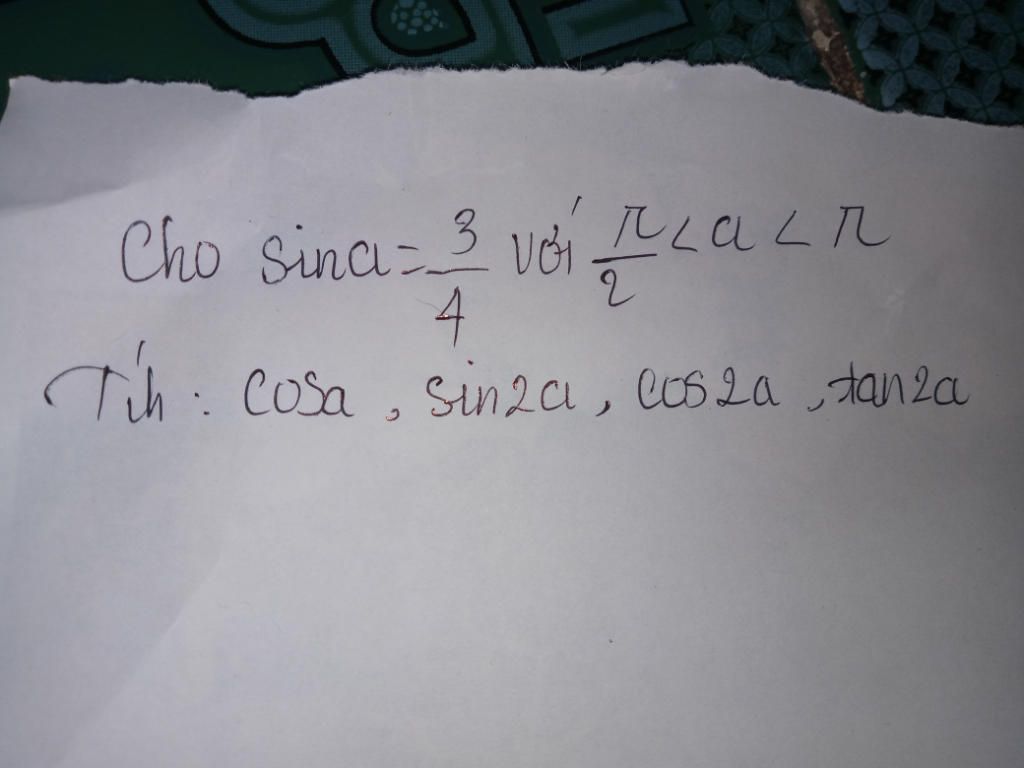 Cho sina = 3/4 với π/2 < a < π
Tíh : cosa , sin2a , cos2a , tan2a